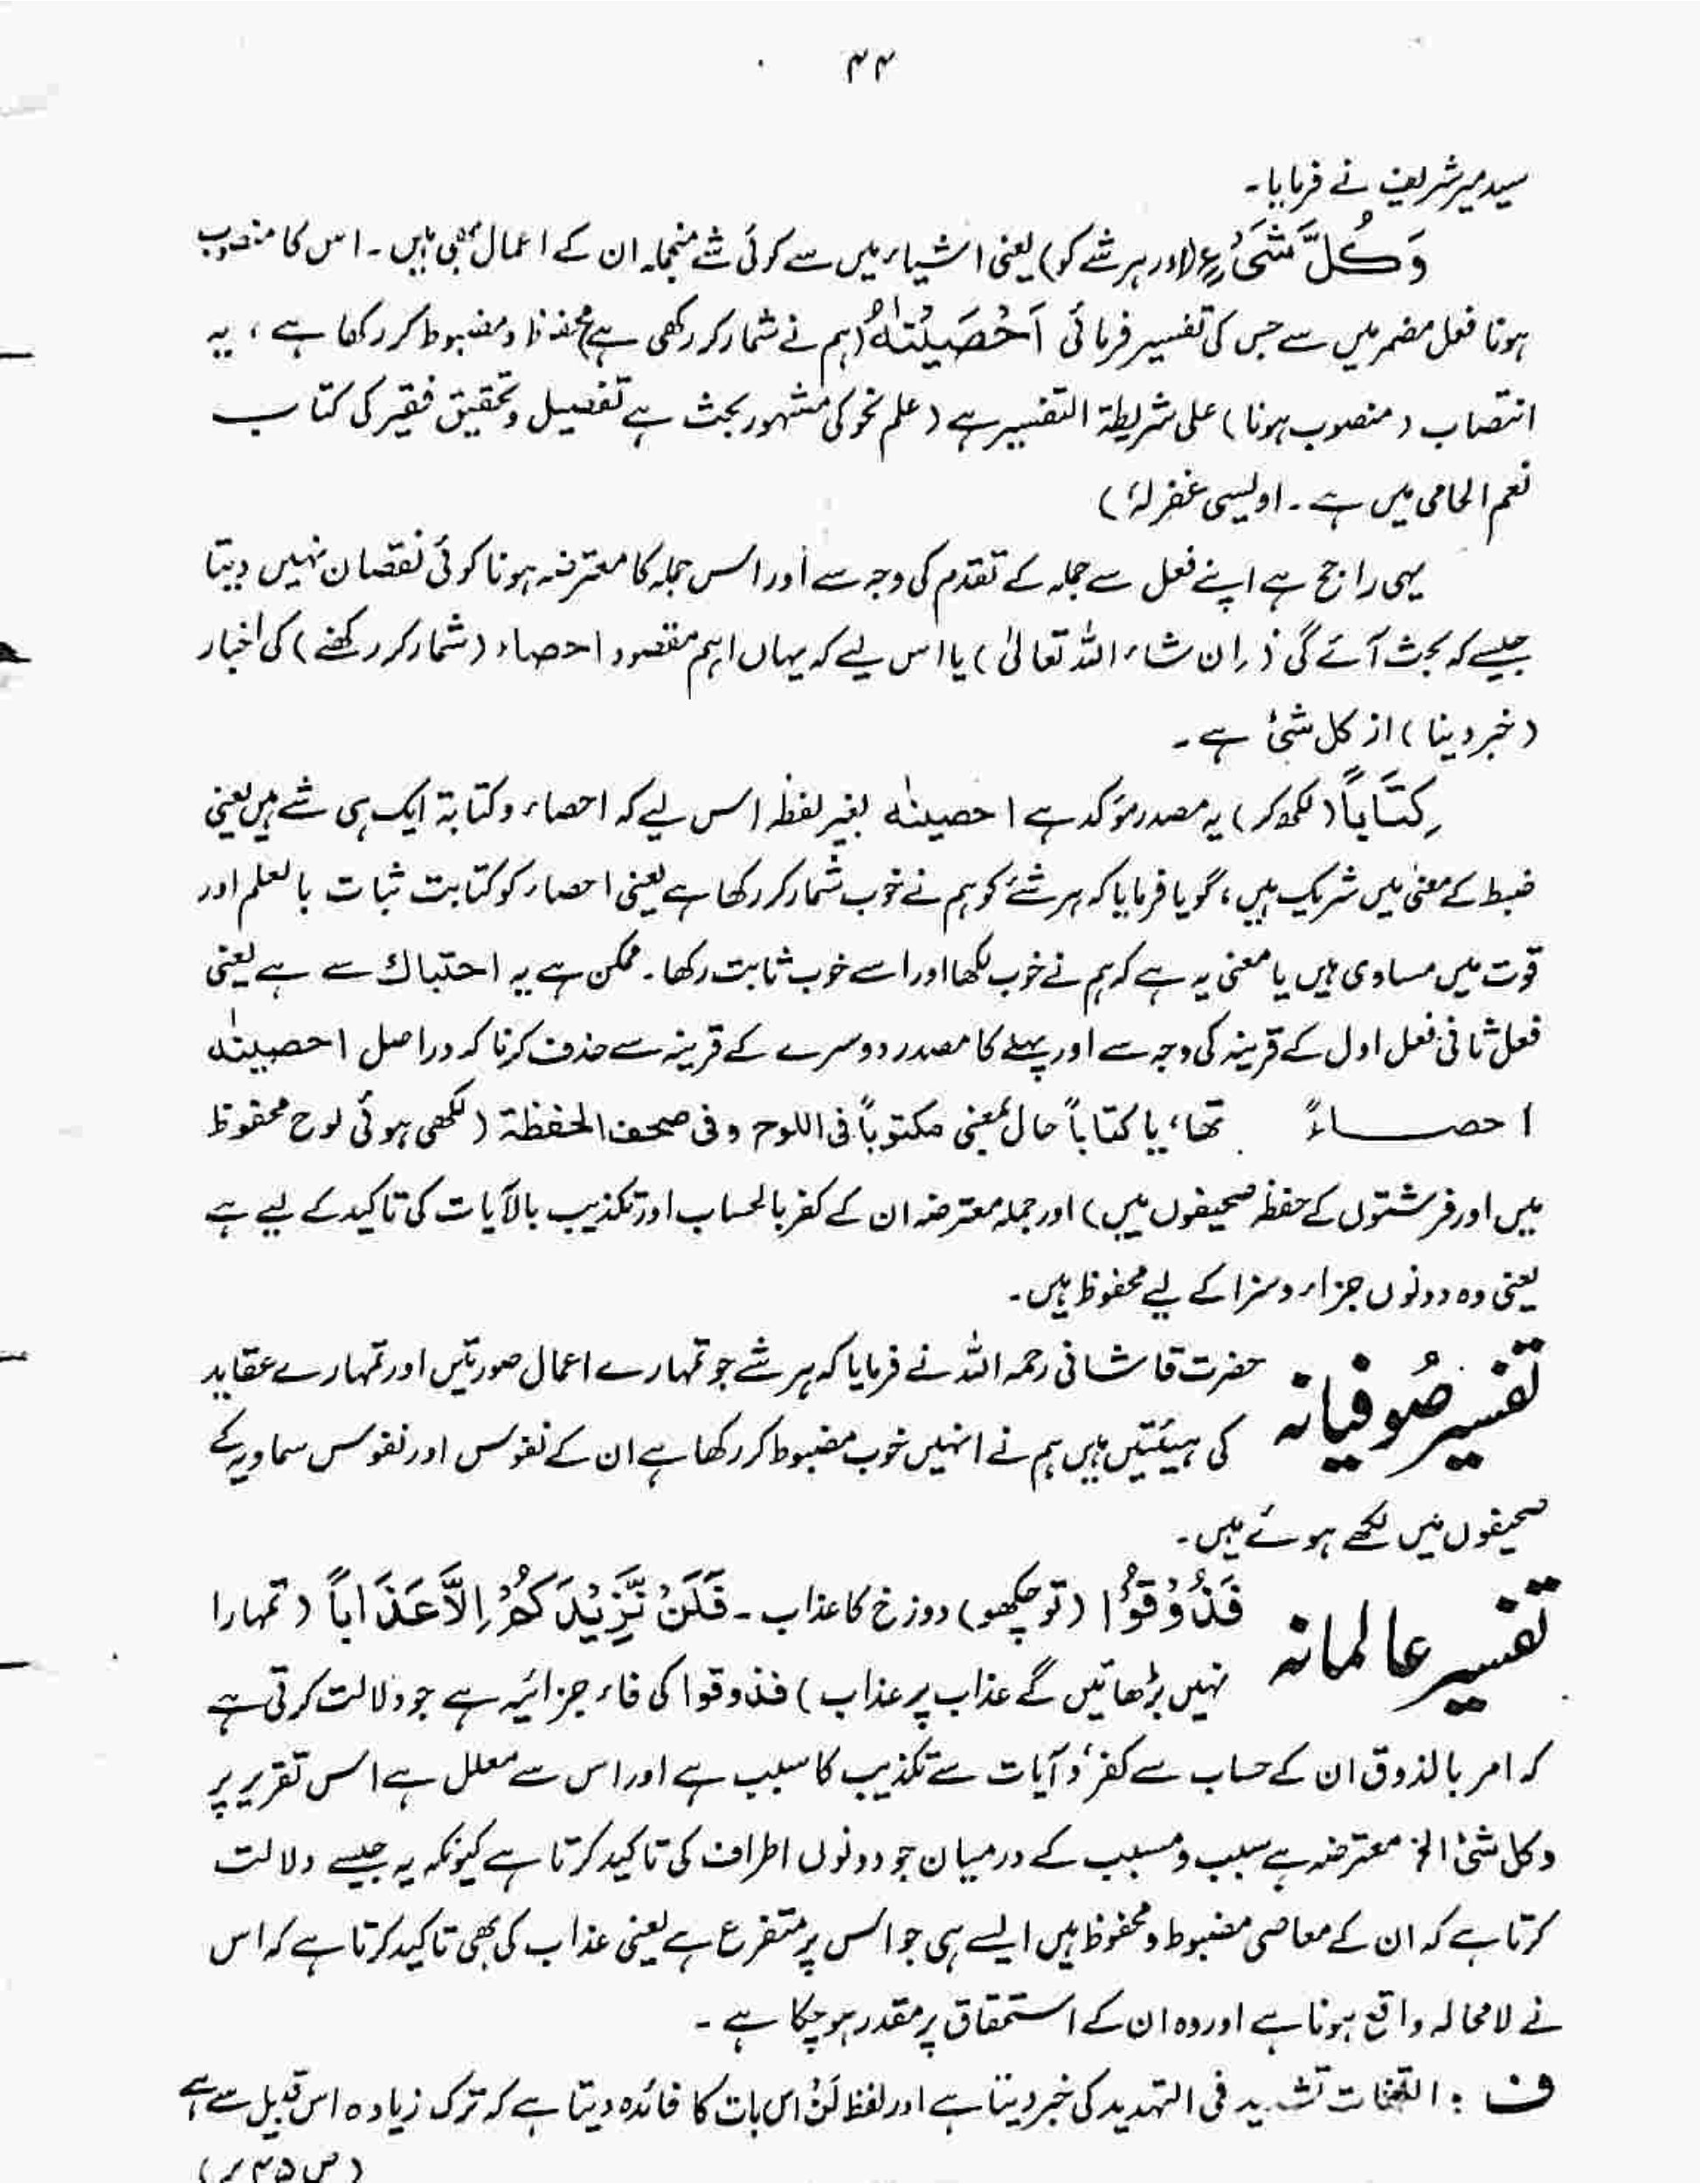 ۴۴
سید میر شریف نے فرمایا۔
وَكُلَّ شَیْءٍ (اور ہر شے کو) یعنی اشیاء میں سے کوئی شے منجملہ ان کے اعمال بھی ہیں۔ اس کا منصوب
ہونا فعل مضمر میں سے جس کی تفسیر فرمائی اَحْصَیْنٰهُ (ہم نے شمار کر رکھی ہے) محفوظ و مضبوط کر رکھا ہے، یہ
انتصاب (منصوب ہونا) علی شریطۃ التفسیر ہے (علم نحو کی مشہور بحث ہے تفصیل و تحقیق فقیر کی کتاب
نعم الحامی میں ہے۔ اویسی غفرلہٗ)
یہی راجح ہے اپنے فعل سے جملہ کے تقدم کی وجہ سے اور اس جملہ کا معترضہ ہونا کوئی نقصان نہیں دیتا
جیسے کہ بحث آئے گی (ان شاء اللہ تعالیٰ) یا اس لیے کہ یہاں اہم مقصود احصاء (شمار کر رکھنے) کی اخبار
(خبر دینا) از کل شیٔ ہے۔
كِتَاباً (لکھ کر) یہ مصدر مؤکد ہے احصینٰہ بغیر لفظہ اس لیے کہ احصاء و کتابۃ ایک ہی شے ہیں یعنی
ضبط کے معنیٰ میں شریک ہیں، گویا فرمایا کہ ہر شئے کو ہم نے خوب شمار کر رکھا ہے یعنی احصاء کو کتابت ثبات بالعلم اور
قوت میں مساوی ہیں یا معنی یہ ہے کہ ہم نے خوب لکھا اور اسے خوب ثابت رکھا۔ ممکن ہے یہ احتباک سے ہے یعنی
فعل ثانی فعل اول کے قرینہ کی وجہ سے اور پہلے کا مصدر دوسرے کے قرینہ سے حذف کرنا کہ دراصل احصینٰہ
احصاءً تھا، یا کتاباً حال بمعنی مکتوباً فی اللوح وفی صحف الحفظۃ (لکھی ہوئی لوح محفوظ
میں اور فرشتوں کے حفظہ صحیفوں میں) اور جملہ معترضہ ان کے کفر بالحساب اور تکذیب بالآیات کی تاکید کے لیے ہے
یعنی وہ دونوں جزاء و سزا کے لیے محفوظ ہیں۔
تفسیر صُوفیانہ حضرت قاشانی رحمہ اللہ نے فرمایا کہ ہر شے جو تمہارے اعمال صورتیں اور تمہارے عقاید
کی ہیئتیں ہیں ہم نے انہیں خوب مضبوط کر رکھا ہے ان کے نفوس اور نفوس سماویہ کے
صحیفوں میں لکھے ہوئے ہیں۔
تفسیر عالمانہ فَذُوْقُوْا (تو چکھو) دوزخ کا عذاب۔ فَلَنْ نَّزِیْدَكُمْ اِلَّا عَذَاباً (تمہارا
نہیں بڑھائیں گے عذاب پر عذاب) فذوقوا کی فاء جزائیہ ہے جو دلالت کرتی ہے
کہ امر بالذوق ان کے حساب سے کفر و آیات سے تکذیب کا سبب ہے اور اس سے معلل ہے اس تقریر پر
وکل شئ الخ معترضہ ہے سبب و مسبب کے درمیان جو دونوں اطراف کی تاکید کرتا ہے کیونکہ یہ جیسے دلالت
کرتا ہے کہ ان کے معاصی مضبوط و محفوظ ہیں ایسے ہی جو اس پر متفرع ہے یعنی عذاب کی بھی تاکید کرتا ہے کہ اس
نے لامحالہ واقع ہونا ہے اور وہ ان کے استحقاق پر مقدر ہو چکا ہے۔
ف : التفات تشدید فی التہدید کی خبر دیتا ہے اور لفظ لَنْ اس بات کا فائدہ دیتا ہے کہ ترک زیادہ اس قبیل سے ہے
(ص ۴۵ پر)